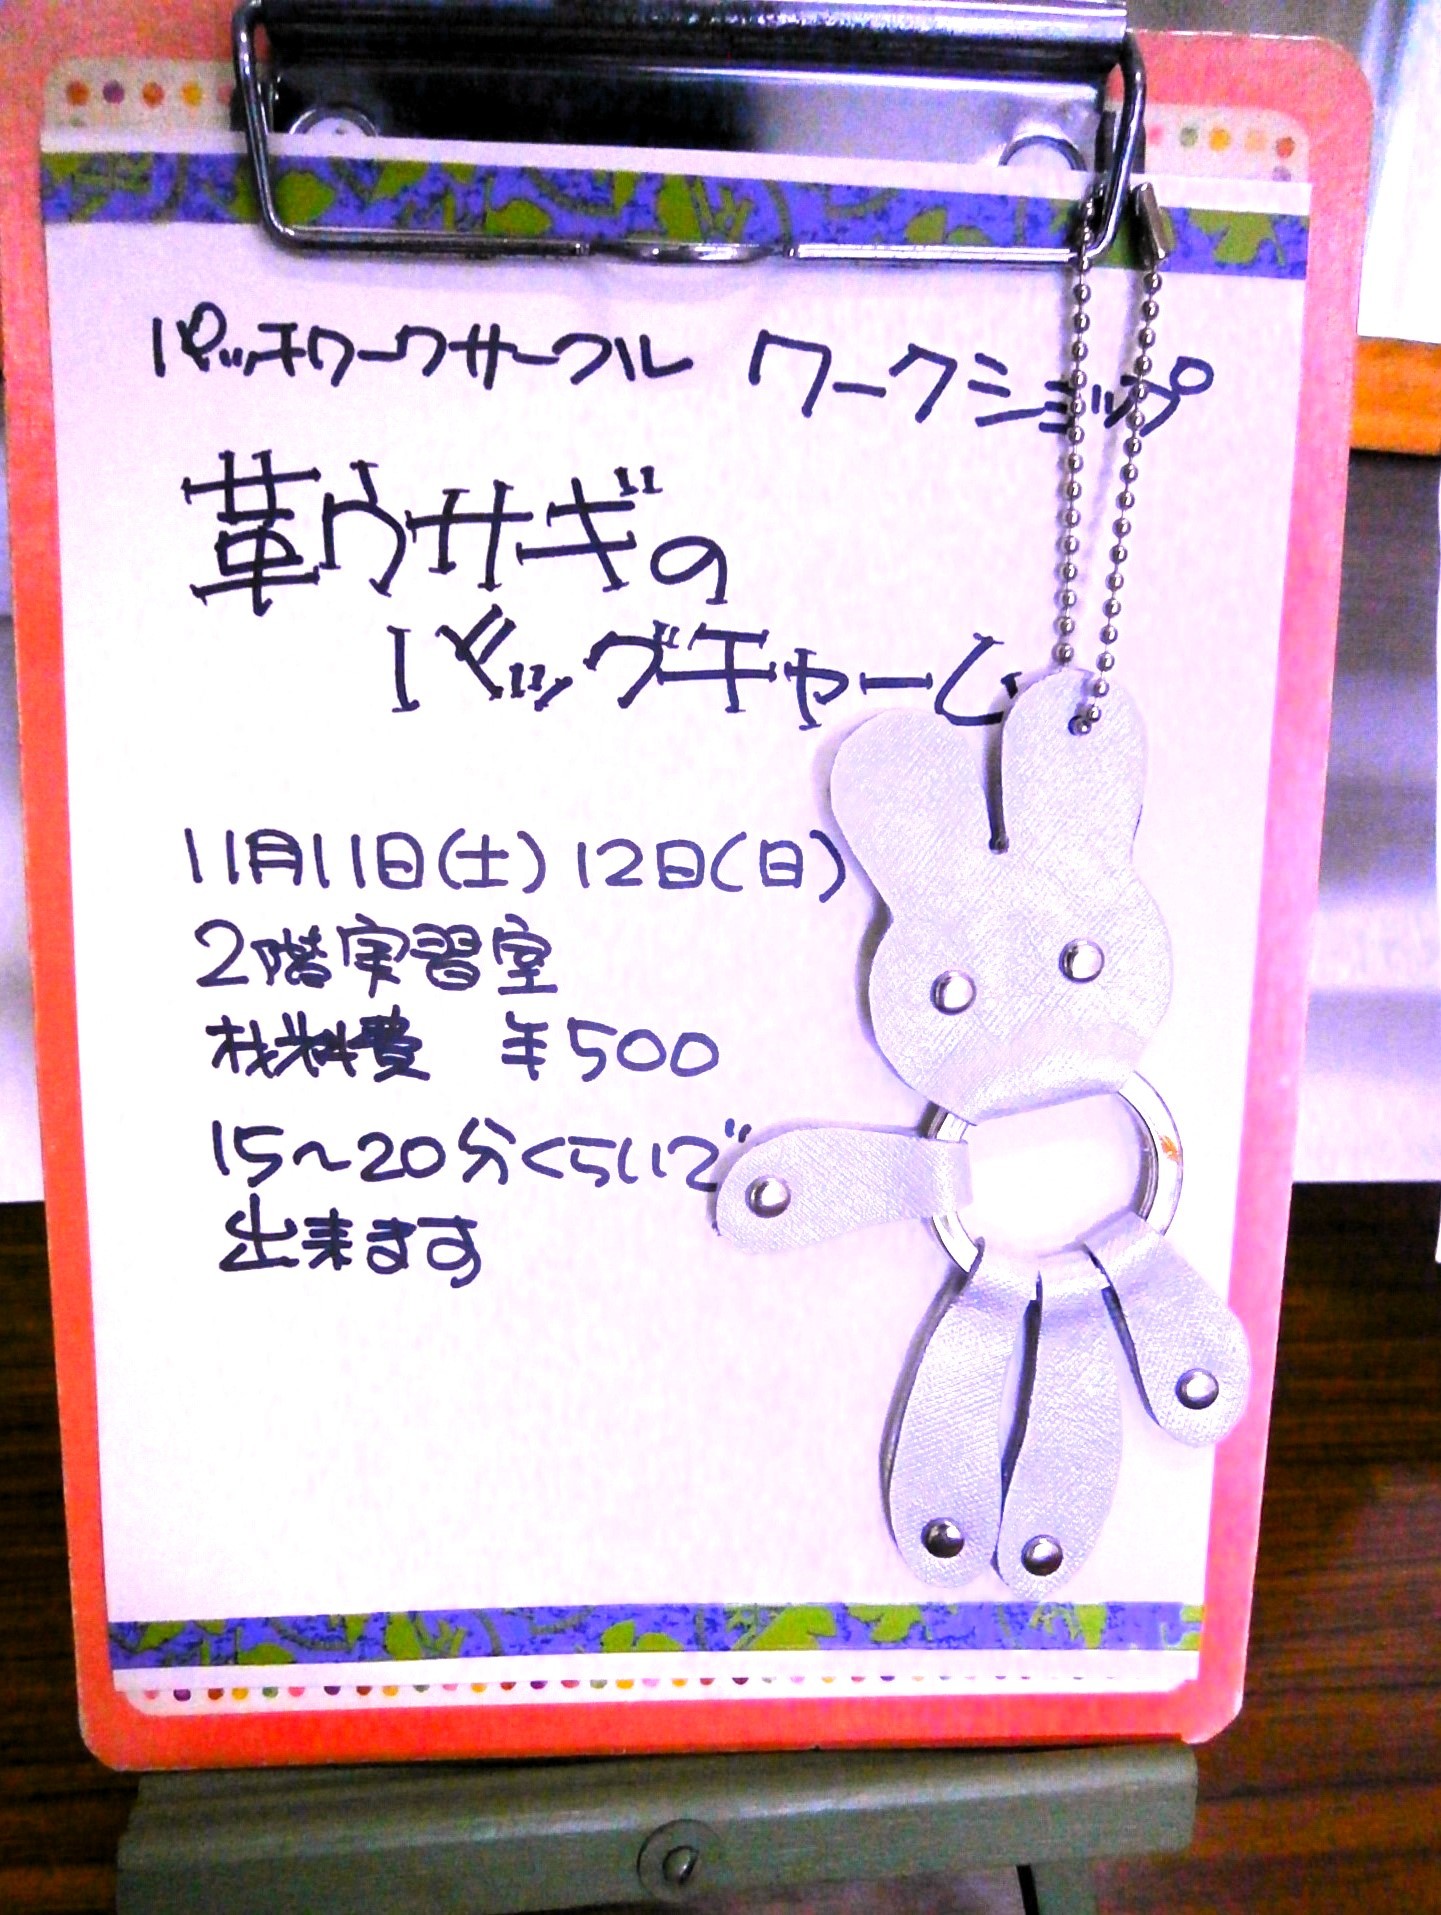 パッチワークサークル ワークショップ
革ウサギの
バッグチャーム
11月11日(土) 12日(日)
2階実習室
材料費 ¥500
15～20分くらいで
出来ます